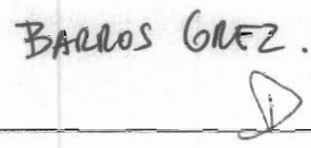 BARROS GREZ.